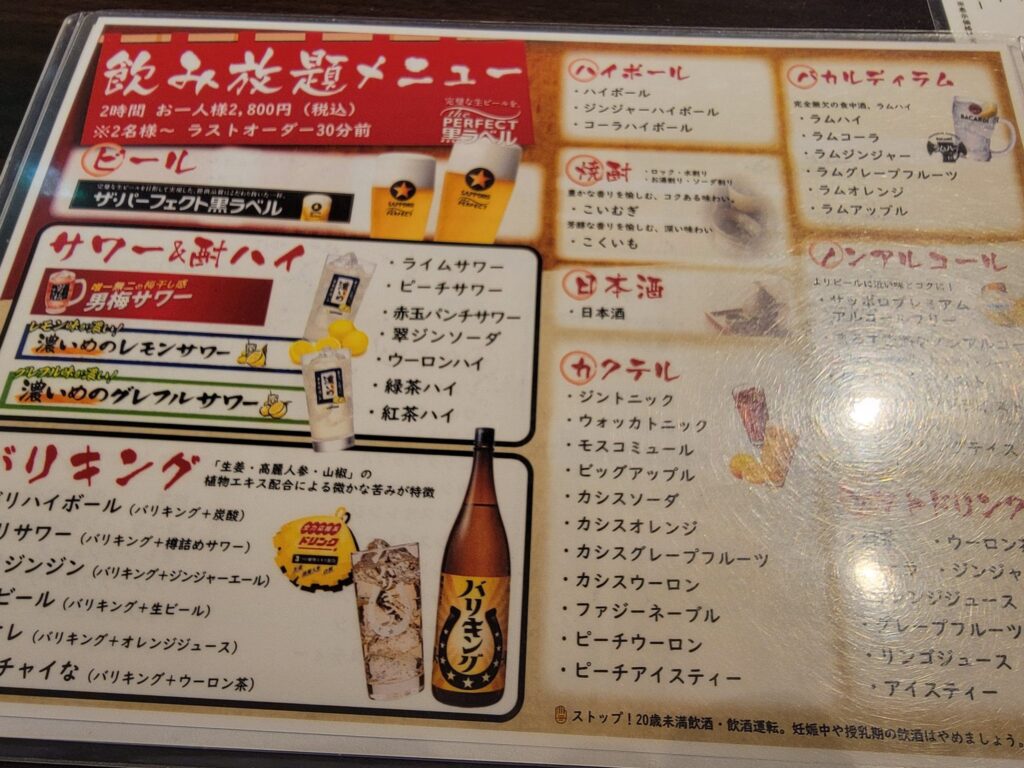 飲み放題メニュー
2時間 お一人様2,800円（税込）
※2名様〜 ラストオーダー30分前
完璧な生ビールを。
The PERFECT
黒ラベル
ビール
ザ・パーフェクト黒ラベル
SAPPORO
PERFECT
SAPPORO
PERFECT
サワー&酎ハイ
唯一無二の梅干し感
男梅サワー
レモン味が濃い!
濃いめのレモンサワー
グレフル味が濃い!
濃いめのグレフルサワー
濃いめ
濃いめ
・ライムサワー
・ピーチサワー
・赤玉パンチサワー
・翠ジンソーダ
・ウーロンハイ
・緑茶ハイ
・紅茶ハイ
バリキング
「生姜・高麗人参・山椒」の
植物エキス配合による微かな苦みが特徴
バリハイボール（バリキング＋炭酸）
リサワー（バリキング＋樽詰めサワー）
ジンジン（バリキング＋ジンジャーエール）
ビール（バリキング＋生ビール）
レ（バリキング＋オレンジジュース）
チャイな（バリキング＋ウーロン茶）
ドリンク
バリキング
ハイボール
・ハイボール
・ジンジャーハイボール
・コーラハイボール
焼酎
・ロック・水割り
・お湯割り・ソーダ割り
豊かな香りを愉しむ、コクある味わい。
・こいむぎ
芳醇な香りを愉しむ、深い味わい
・こくいも
日本酒
・日本酒
カクテル
・ジントニック
・ウォッカトニック
・モスコミュール
・ビッグアップル
・カシスソーダ
・カシスオレンジ
・カシスグレープフルーツ
・カシスウーロン
・ファジーネーブル
・ピーチウーロン
・ピーチアイスティー
バカルディラム
完全無欠の食中酒、ラムハイ
・ラムハイ
・ラムコーラ
・ラムジンジャー
・ラムグレープフルーツ
・ラムオレンジ
・ラムアップル
BACARDI
ラムハイ
ノンアルコール
よりビールに近い味とコクに!
・サッポロプレミアム
アルコールフリー
ノンアルコー
ソフトドリンク
・ウーロン
・ジンジャ
オレンジジュース
・グレープフルーツ
・リンゴジュース
・アイスティー
ストップ！20歳未満飲酒・飲酒運転。妊娠中や授乳期の飲酒はやめましょう。